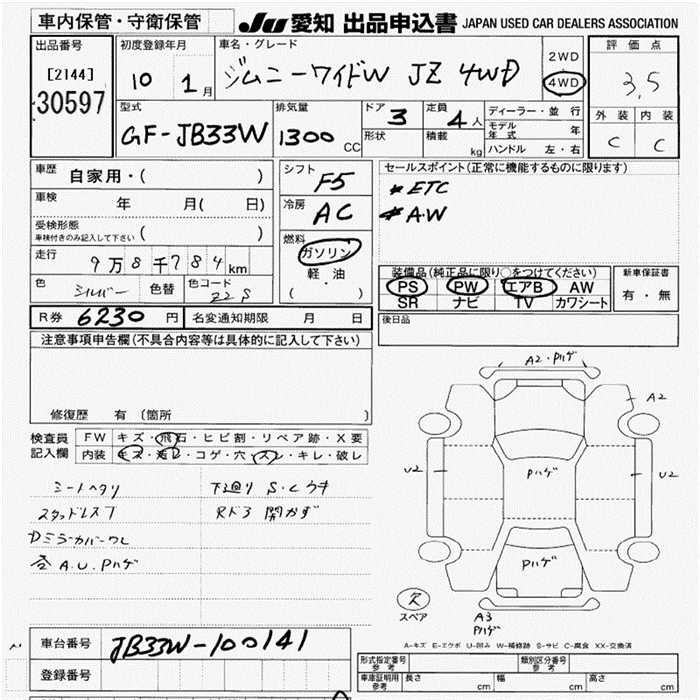 車内保管・守衛保管
JU 愛知 出品申込書 JAPAN USED CAR DEALERS ASSOCIATION
出品番号
[2144]
30597
初度登録年月
10 1月
車名・グレード
ジムニーワイドW JZ 4WD
2WD
4WD
評価点
3,5
外装 内装
C C
型式
GF-JB33W
排気量
1300 CC
ドア 3
形状
定員 4人
積載 kg
ディーラー・並行
モデル年式 年
ハンドル 左・右
車歴 自家用・( )
車検 年 月( 日)
受検形態
車検付きのみ記入して下さい ( )
走行 9万8千784km
色 シルバー 色替 色コード Z2S
シフト F5
冷房 AC
燃料
ガソリン
軽・油
( ・ )
セールスポイント(正常に機能するものに限ります)
#ETC
#AW
装備品(純正品に限り○をつけてください)
PS PW エアB AW
SR ナビ TV カワシート
新車保証書
有・無
R券 6230円 名変通知期限 月 日
後日品
注意事項申告欄(不具合内容等は具体的に記入して下さい)
修復歴 有 (箇所 )
検査員
記入欄
FW キズ・飛石・ヒビ割・リペア跡・X要
内装 キズ・汚レ・コゲ・穴・スレ・キレ・破レ
シートヘタリ
スタッドレス
Dミラーカバーワレ
A.U.Pハゲ
下廻り S・Cウキ
Rドア 開かず
A2・Pハゲ
A2
U2
Pハゲ
U2
Pハゲ
欠
スペア
A3
Pハゲ
A-キズ E-エクボ U-凹み W-補修跡 S-サビ C-腐食 XX-交換済
車台番号 JB33W-100141
登録番号
形式指定番号
参考
類別区分番号
参考
車庫証明用
参考
長さ cm 幅 cm 高さ cm